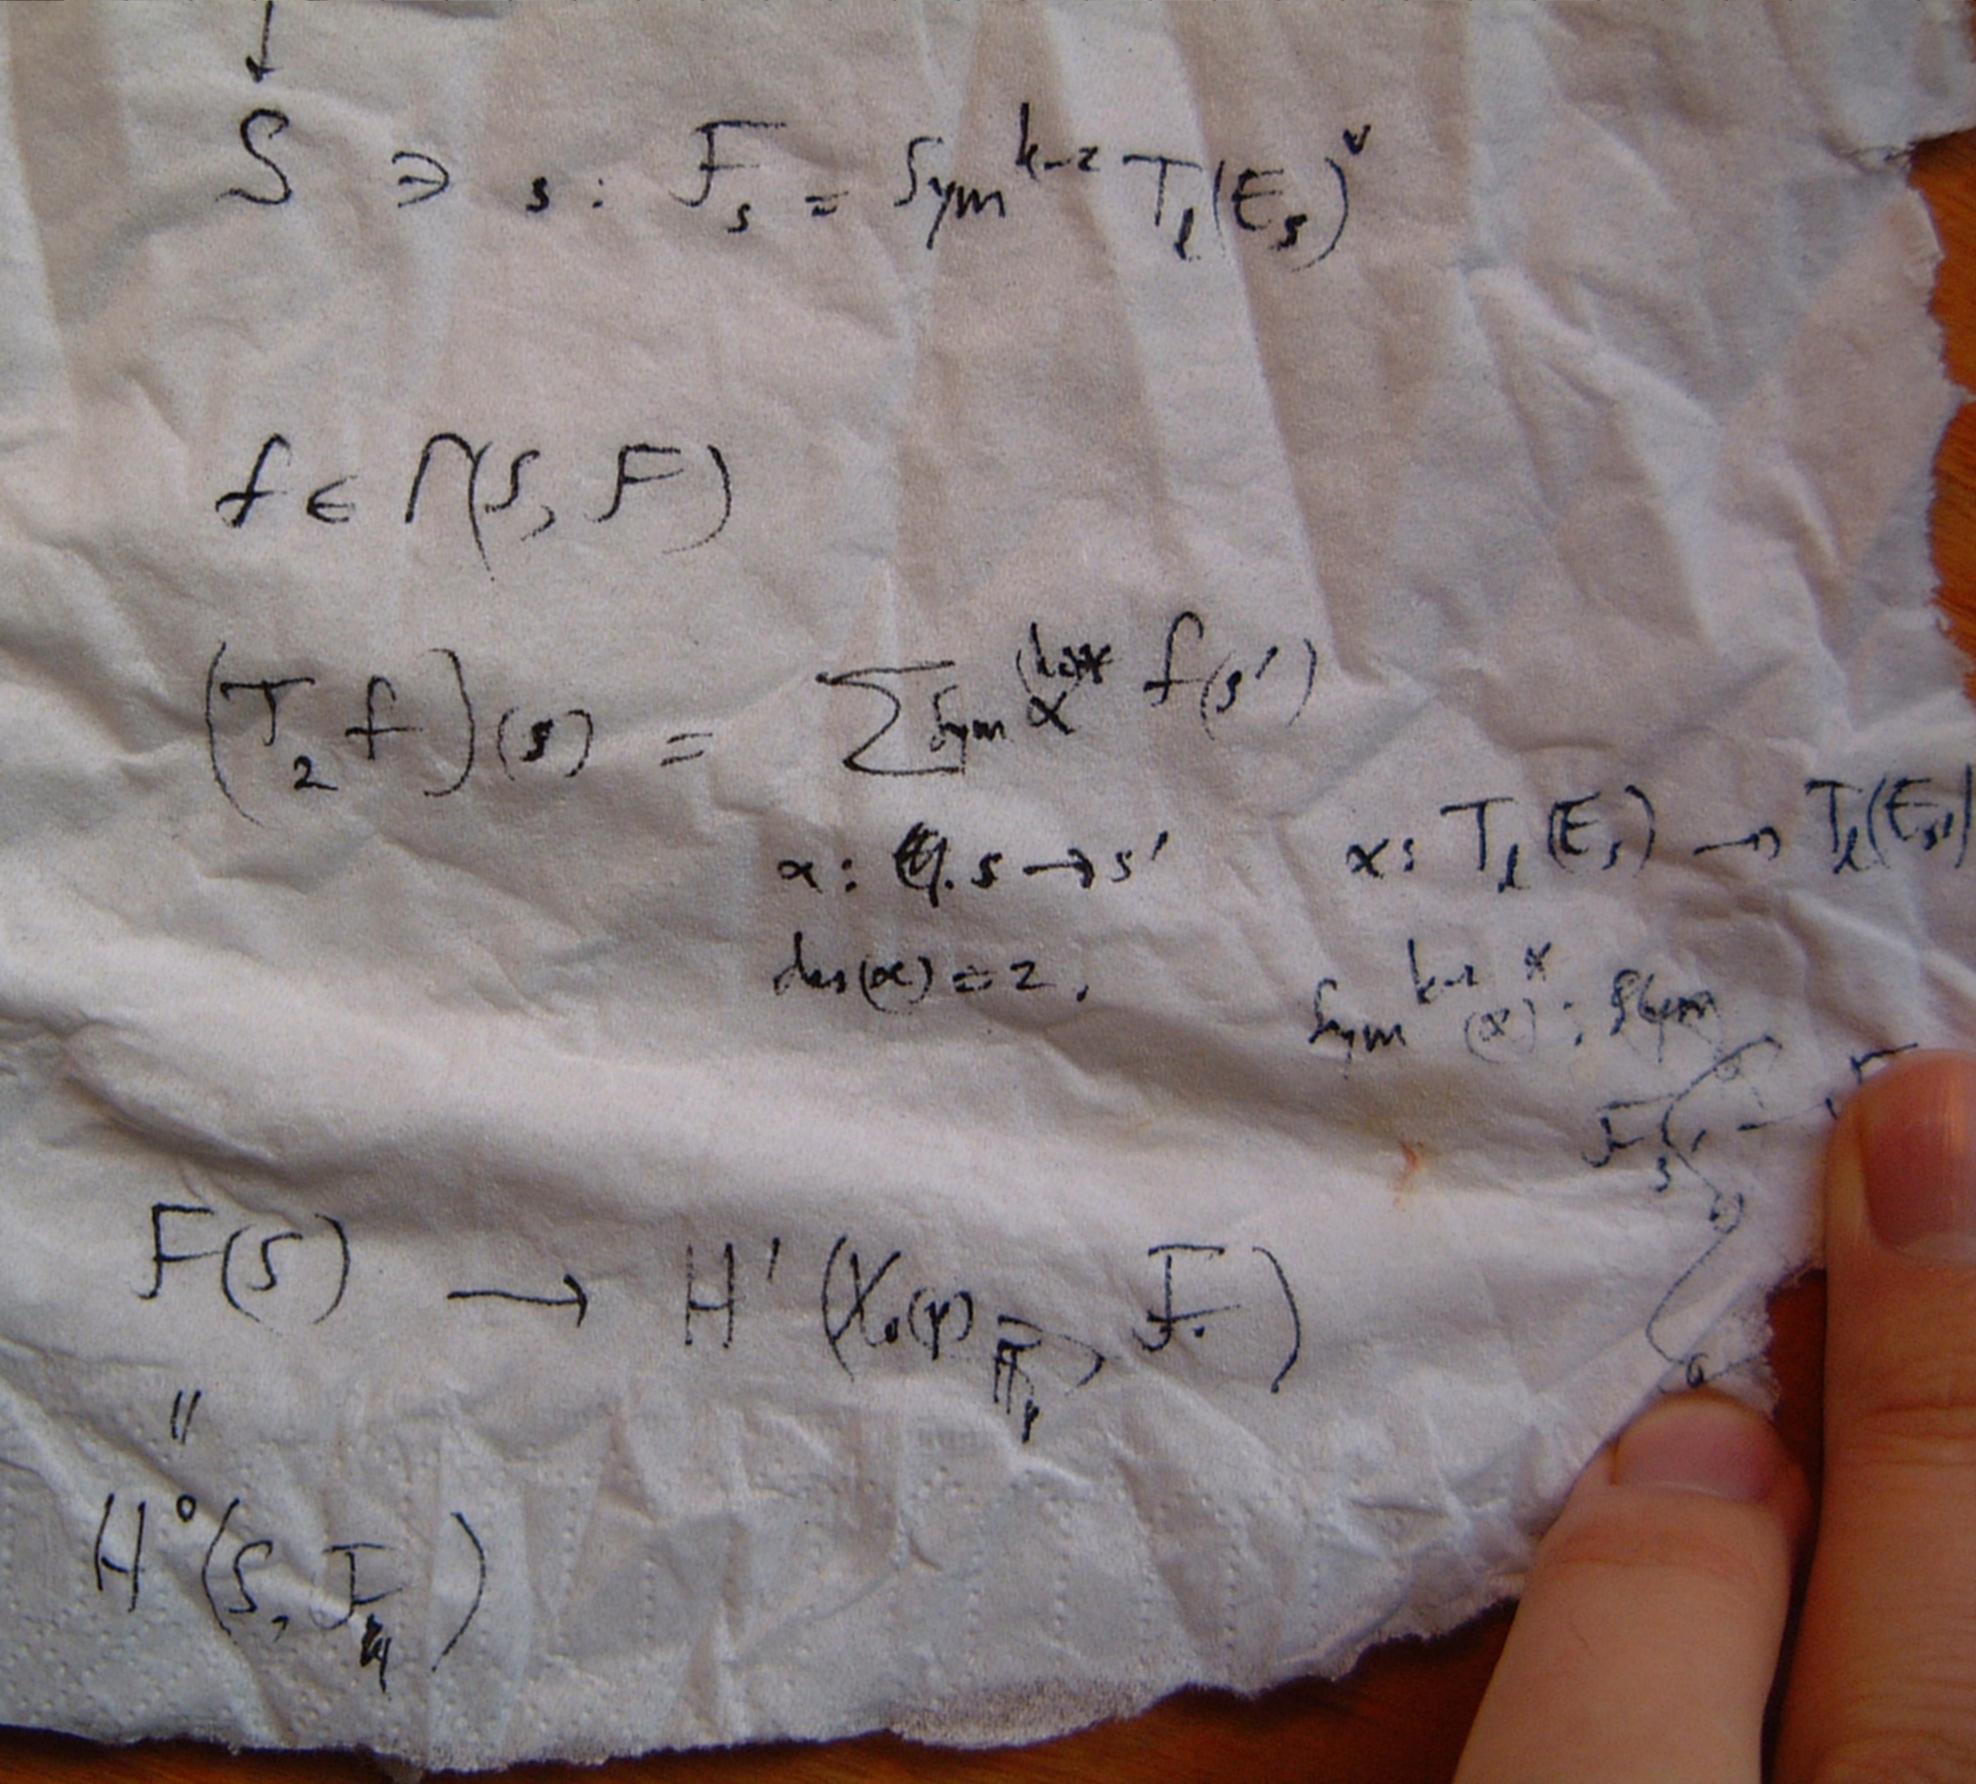 ↓
S ∋ s : F_s = Sym^{k-2} T_l(E_s)^∨
f ∈ Γ(S, F)
(T_2 f)(s) = Σ Sym^{(k-2)} α^* f(s')
α: s → s' α: T_l(E_s) → T_l(E_{s'})
deg(α) = 2. Sym^{k-2}(α)^*: Sym
F_{s'} → F
F(S) → H^1(X_0(p)_{\overline{F}_p}, F)
"
H^0(S, F)